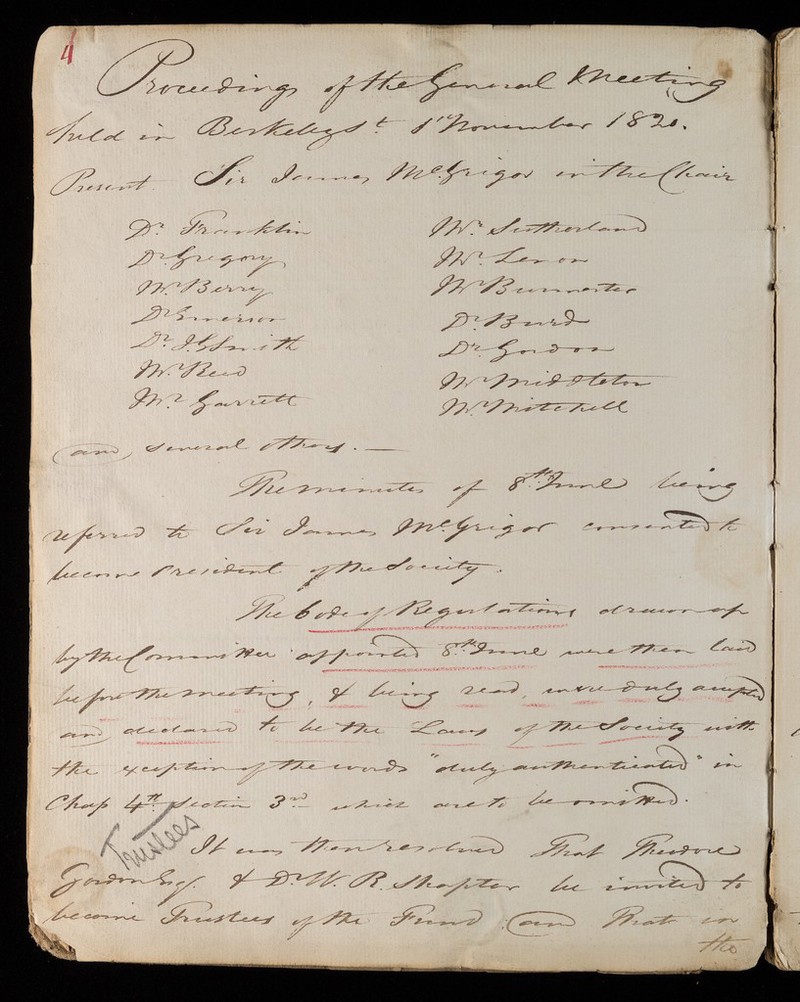 4
Proceedings of the General Meeting
held in Berkeley St. 1st November 1820.
Present Sir James McGrigor in the Chair
Dr. Franklin Mr. Sutherland
Dr. Gregory
Mr. Berry Mr. Burmester
Dr. Emerson Dr. Burd
Dr. J. G. Smith Dr. Gordon
Mr. Reed Mr. Middleton
Mr. Garrett Mr. Mitchell
and, several others. —
The minutes of 8th. June being
referred to Sir James McGrigor consented to
become President of the Society.
The Code of Regulations drawn up
by the Committee appointed 8th. June were then laid
before the meeting, & being read, were duly accepted
and declared to be the Laws of the Society with
the exception of the words "duly authenticated" in
Chap 4th. Section 3rd which are to be omitted.
Trustees
It was then resolved That Theodore
Gordon Esq. & Dr. W. R. Shapter be invited to
become Trustees of the Fund; and That in
the